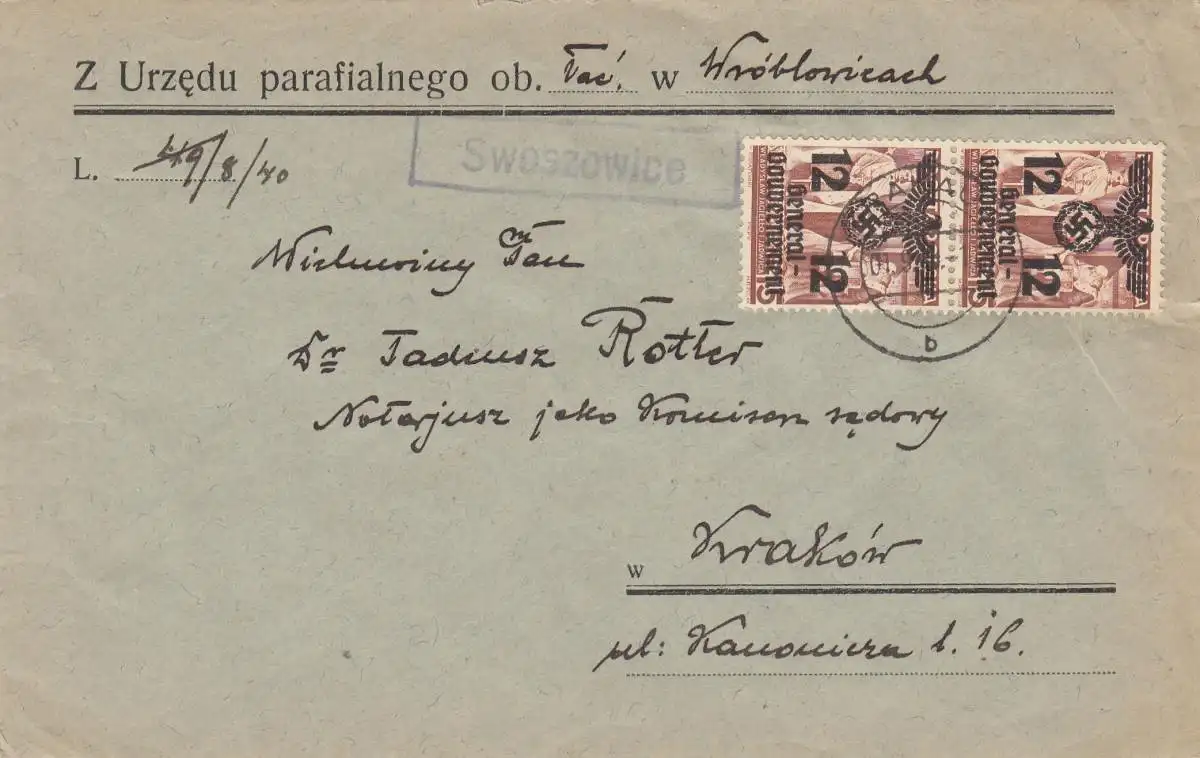 Z Urzędu parafialnego ob. łać. w Wróblowicach
L. 449/8/40
Swoszowice
12 12
General-
Gouvernement
WŁADYSŁAW JAGIEŁŁO I JADWIGA
12 12
General-
Gouvernement
b
Wielmożny Pan
Dr Tadeusz Rotter
Notarjusz jako Komisarz sądowy
w Kraków
ul: Kanonicza l. 16.